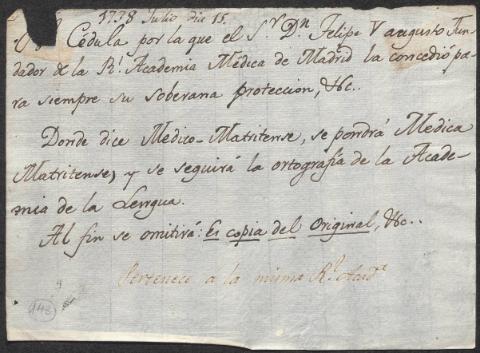 1738 Julio dia 15.
Cédula por la que el S.r D.n Felipe V augusto Fun-
dador de la R.l Academia Médica de Madrid la concedió pa-
ra siempre su soberana proteccion, &c..
Donde dice Medico-Matritense, se pondrá Medica
Matritense, y se seguirá la ortografía de la Acade-
mia de la Lengua.
Al fin se omitirá: Es copia del Original, &c..
Pertenece a la misma R.l Acad.a